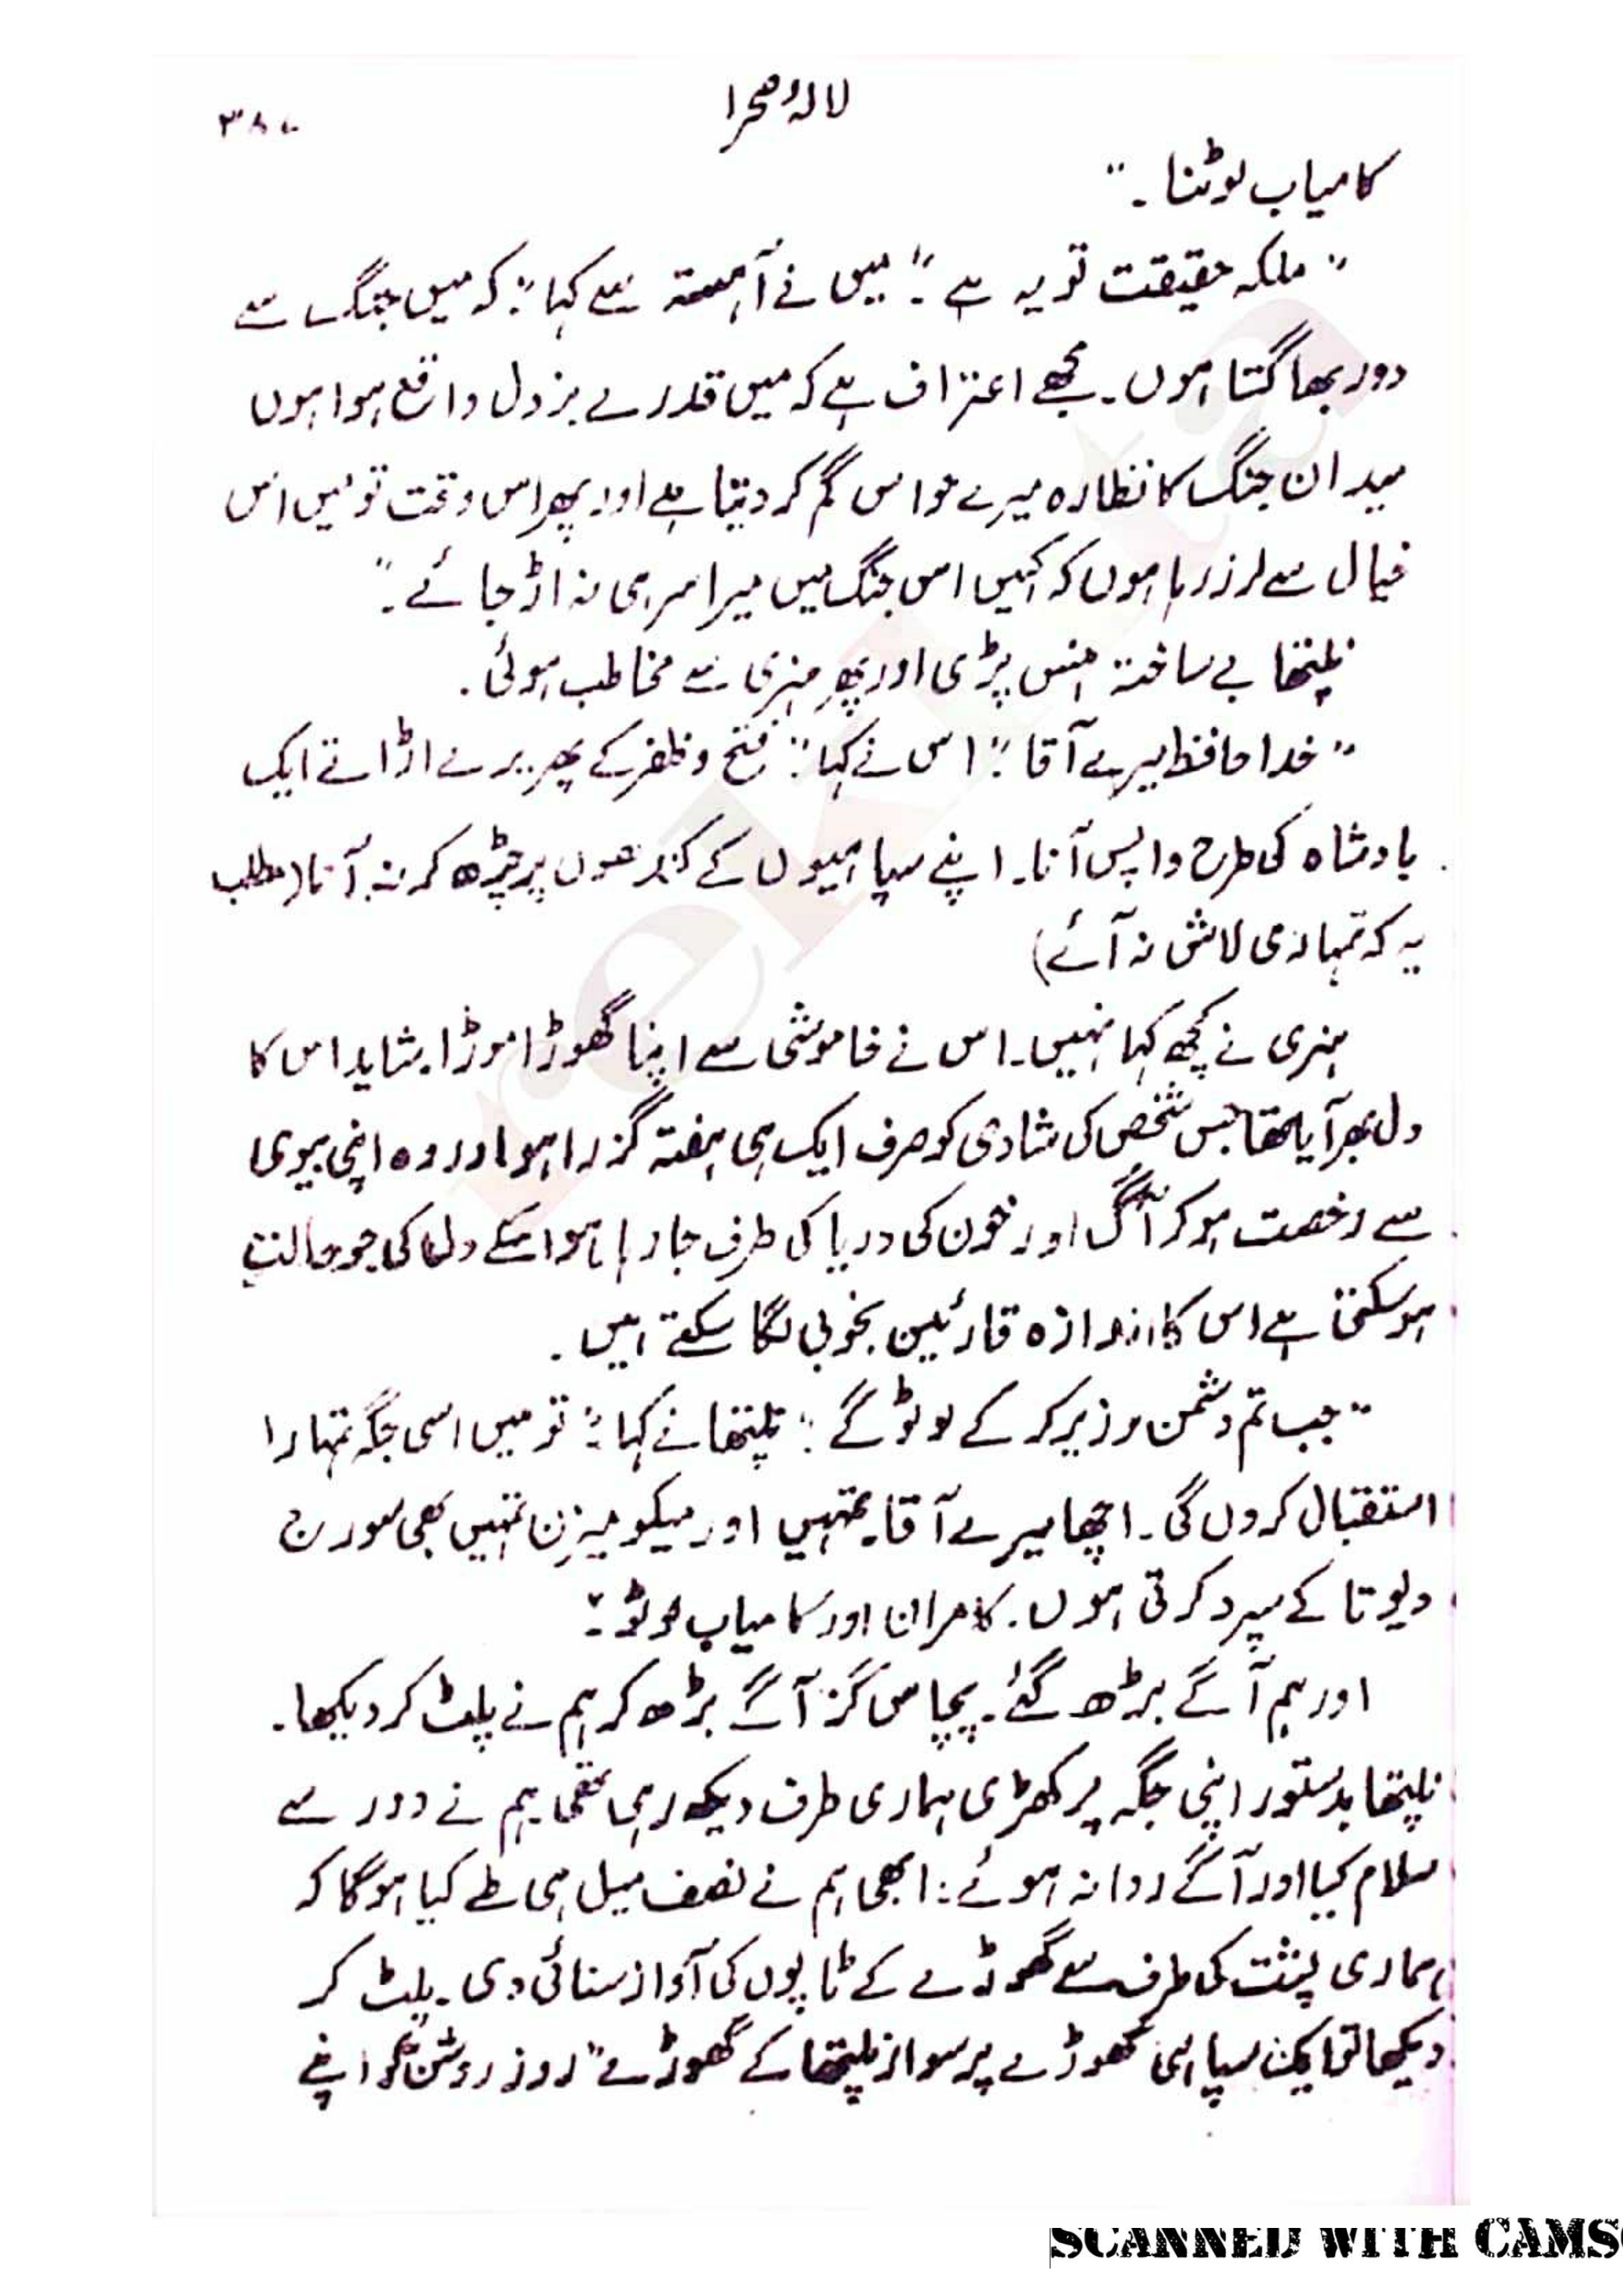 لالہء صحرا
۳۸۷
کامیاب لوٹنا۔"
"ملکہ حقیقت تو یہ ہے۔" میں نے آہستہ سے کہا: "کہ میں جنگ سے
دور بھاگتا ہوں۔ مجھے اعتراف ہے کہ میں قدرے بزدل واقع ہوا ہوں
میدان جنگ کا نظارہ میرے حواس گم کر دیتا ہے اور پھر اس وقت تو میں اس
خیال سے لرز رہا ہوں کہ کہیں اس جنگ میں میرا سر ہی نہ اڑ جائے۔"
نلپتھا بے ساختہ ہنس پڑی اور پھر ہنری سے مخاطب ہوئی۔
"خدا حافظ میرے آقا۔" اس نے کہا: "فتح و ظفر کے پھریرے اڑاتے ایک
بادشاہ کی طرح واپس آنا۔ اپنے سپاہیوں کے کندھوں پر چڑھ کر نہ آنا (مطلب
یہ کہ تمہاری لاش نہ آئے)
ہنری نے کچھ کہا نہیں۔ اس نے خاموشی سے اپنا گھوڑا موڑا۔ شاید اس کا
دل بھر آیا تھا جس شخص کی شادی کو صرف ایک ہی ہفتہ گزرا ہو اور وہ اپنی بیوی
سے رخصت ہو کر آگ اور خون کی دریا کی طرف جا رہا ہو اسکے دل کی جو حالت
ہو سکتی ہے اس کا اندازہ قارئین بخوبی لگا سکتے ہیں۔
"جب تم دشمن کو زیر کر کے لوٹو گے" نلپتھا نے کہا: "تو میں اسی جگہ تمہارا
استقبال کروں گی۔ اچھا میرے آقا۔ تمہیں اور میکومیزن تمہیں بھی سورج
دیوتا کے سپرد کرتی ہوں۔ کامران اور کامیاب لوٹو۔"
اور ہم آگے بڑھ گئے۔ پچاس گز آگے بڑھ کر ہم نے پلٹ کر دیکھا۔
نلپتھا بدستور اپنی جگہ پر کھڑی ہماری طرف دیکھ رہی تھی۔ ہم نے دور سے
سلام کیا اور آگے روانہ ہوئے: ابھی ہم نے نصف میل ہی طے کیا ہوگا کہ
ہماری پشت کی طرف سے گھوڑے کے ٹاپوں کی آواز سنائی دی۔ پلٹ کر
دیکھا تو ایک سپاہی گھوڑے پر سوار نلپتھا کے گھوڑے "روز روشن" کو اپنے
SCANNED WITH CAMS